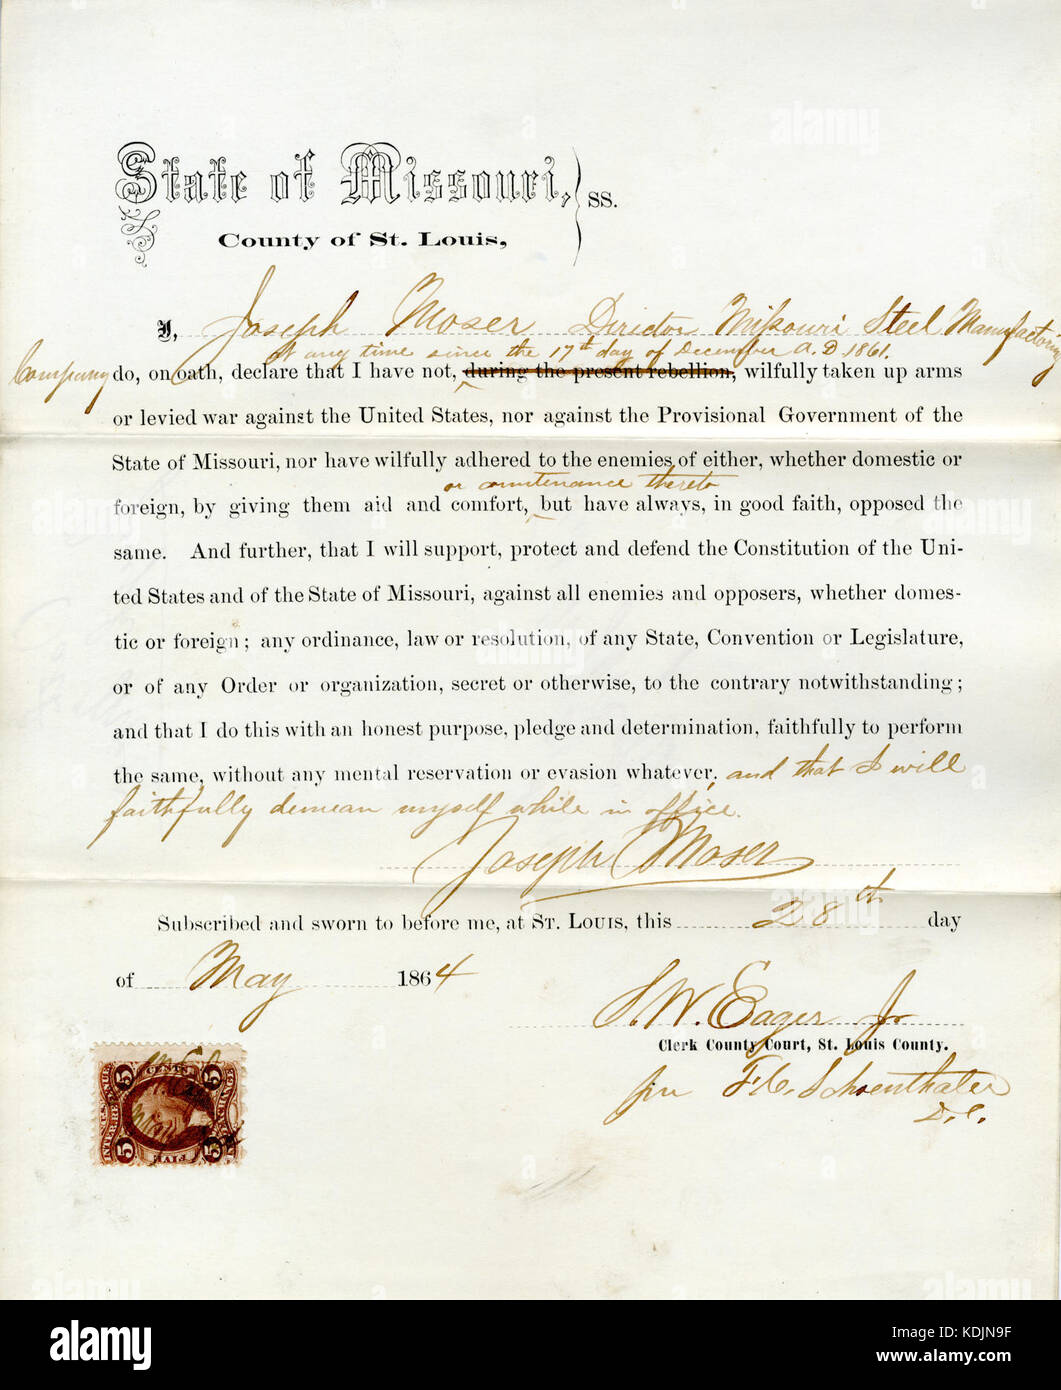 State of Missouri, } SS.
County of St. Louis,
I, Joseph Moser Director Missouri Steel Manufactoring
At any time since the 17th day of December A.D 1861.
Company do, on oath, declare that I have not, during the present rebellion, wilfully taken up arms
or levied war against the United States, nor against the Provisional Government of the
State of Missouri, nor have wilfully adhered to the enemies of either, whether domestic or
or countenance thereto
foreign, by giving them aid and comfort, but have always, in good faith, opposed the
same. And further, that I will support, protect and defend the Constitution of the Uni-
ted States and of the State of Missouri, against all enemies and opposers, whether domes-
tic or foreign; any ordinance, law or resolution, of any State, Convention or Legislature,
or of any Order or organization, secret or otherwise, to the contrary notwithstanding;
and that I do this with an honest purpose, pledge and determination, faithfully to perform
the same, without any mental reservation or evasion whatever, and that I will
faithfully demean myself while in office.
Joseph Moser
Subscribed and sworn to before me, at St. Louis, this 28th day
of May 1864
S.W. Eager Jr
Clerk County Court, St. Louis County.
per F.C. Schoenthaler
D.C.
5 CENTS 5
INTER. REVENUE
5 FIVE 5
alamy
Image ID: KDJN9F
www.alamy.com